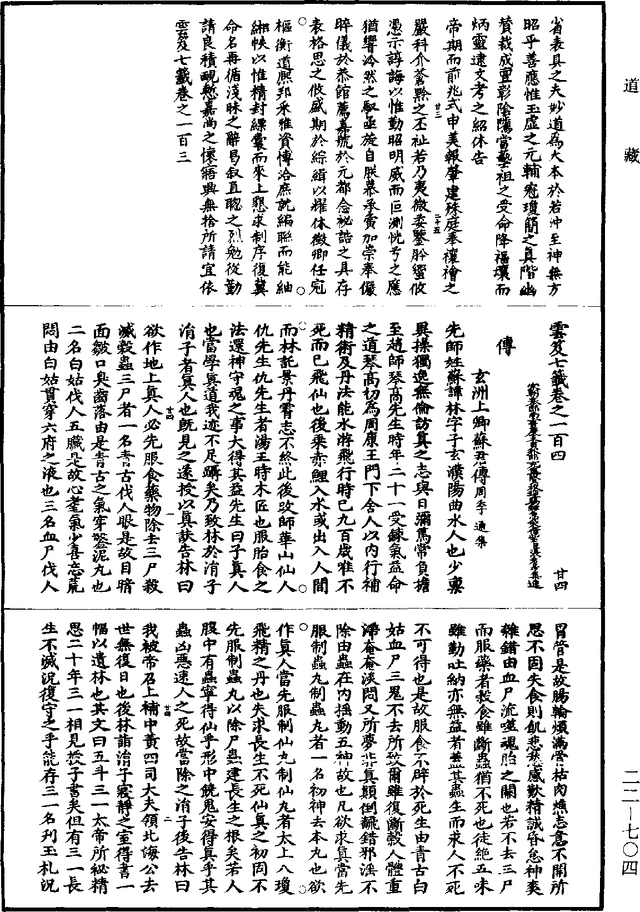 道藏
省表具之夫妙道爲大本於若沖至神無方
昭乎善應惟玉虛之元輔冠瓊簡之真階幽
贊裁成靈彰陰隲當藝祖之受命降福壤而
炳靈遠文考之紹休告
帝期而前兆式申美報肇建殊庭奉禳禬之
嚴科介蒼黔之丕祉若乃夷微委鑒肸蠁攸
憑示諄誨以惟勤昭明威而叵測恍兮之應
猶響泠然之馭亟旋自朕纂承賡加崇奉儼
睟儀於恭館薦嘉號於元都念祕誥之具存
袤格思之攸盛期於綜緝以耀休徽卿任冠
樞衡道熙邦采雅資博洽庶就編聯而能紬
緗帙以惟精封縹囊而來上懇求制序復冀
命名再循淺昧之辭曷叙直聰之烈勉從勤
請良積覥慙嘉尚之懷寤興無捨所請宜依
雲笈七籤卷之一百三
雲笈七籤卷之一百四 廿四
傳
玄洲上卿蘇君傳 周季通集
先師姓蘇諱林字子玄濮陽曲水人也少稟
異操獨逸無倫訪真之志與日彌篤常負擔
至趙師琴高先生時年二十一受鍊氣益命
之道琴高初爲周康王門下舍人以内行補
精術及丹法能水游飛行時已九百歲唯不
死而已飛仙也後乘赤鯉入水或出入人間
而林託景丹霄志不終此後改師華山仙人
仇先生仇先生者湯王時木匠也服胎食之
法還神守魂之事大得其益先生曰子真人
也當學真道我迹不足躡矣乃致林於涓子
涓子者真人也既見之遂授以真訣告林曰
欲作地上真人必先服食藥物除去三尸殺
滅穀蟲三尸者一名青古伐人眼是故目暗
面皺口臭齒落由是青古之氣穿鑿泥丸也
二名白姑伐人五臟是故心耄氣少喜忘荒
悶由白姑貫穿六府之液也三名血尸伐人
胃管是故腸輪煩滿骨枯肉燋志意不開所
思不固失食則飢悲愁感歎精誠昏怠神爽
雜錯由血尸流噬魂胎之關也若不去三尸
而服藥者穀食雖斷蟲猶不死也徒絶五味
雖勤吐納亦無益者蓋其蟲生而求人不死
不可得也是故服食不辟於死生由青古白
姑血尸三鬼不去所致爾雖復斷穀人體重
滯奄奄淡悶又所夢非真顛倒翻錯邪淫不
除由蟲在内摇動五神故也凡欲求真當先
服制蟲丸制蟲丸者一名初神去本丸也欲
作真人當先服制仙丸制仙丸者太上八瓊
飛精之丹也夫求長生不死仙真之初罔不
先服制蟲丸以除尸蟲建長生之根矣若人
腹中有蟲寧得仙乎形中競鬼安得真乎其
蟲凶惡速人之死故當除之涓子後告林曰
我被帝召上補中黃四司大夫領北海公去
世無復日也後林詣涓子寢靜之室得書一
幅以遺林也其文曰五斗三一太帝所祕精
思二十年三一相見授子書矣但有三一長
生不滅況復守之乎能存三一名列玉札況
二二—七〇四